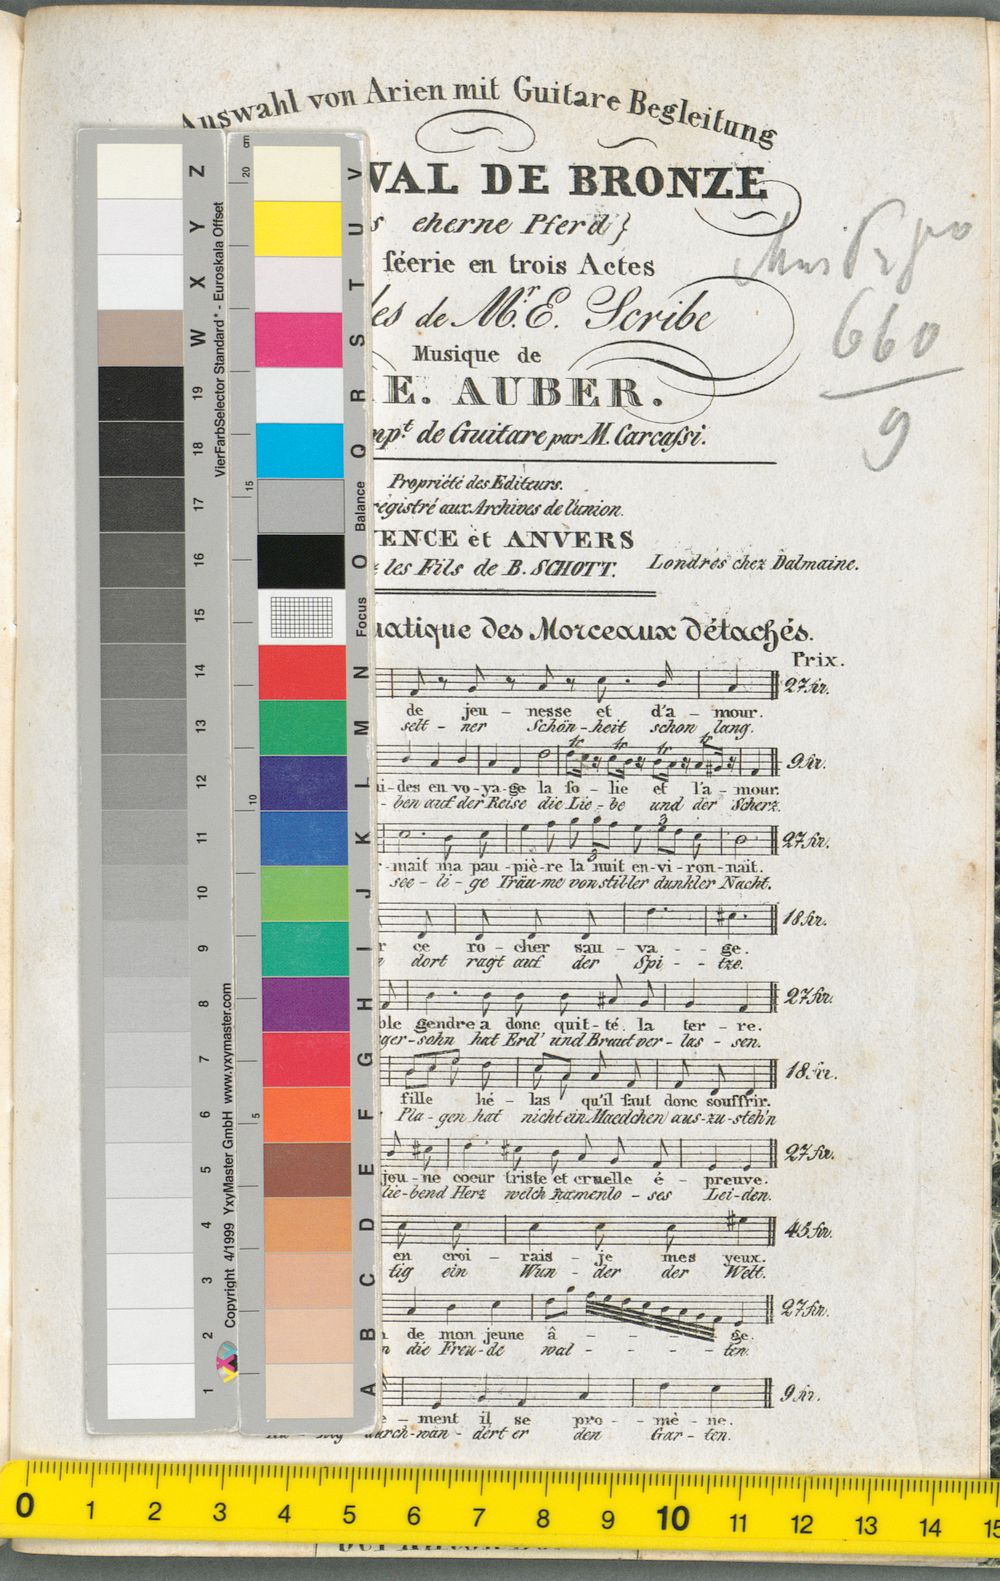 Auswahl von Arien mit Guitare Begleitung
VAL DE BRONZE
eherne Pferd}
féerie en trois Actes
de Mr. E. Scribe
Musique de
E. AUBER.
mpt. de Guitare par M. Carcassi.
Propriété des Editeurs.
registré aux Archives de l'union.
ENCE et ANVERS
les Fils de B. SCHOTT.
Londres chez Dalmaine.
660
9
matique des Morceaux détachés.
Prix.
27 kr.
de jeu - nesse et d'a - mour.
selt - ner Schön - heit schon lang.
9 kr.
i - des en vo - ya - ge la fo - lie et l'a - mour.
- ben auf der Reise die Lie - be und der Scherz.
27 kr.
- mait ma pau - piè - re la nuit en - vi - ron - nait.
see - li - ge Träu - me von stil - ler dunkler Nacht.
18 kr.
r ce ro - cher sau - va - - ge.
dort ragt auf der Spi - - tze.
27 kr.
ble gendre a donc quit - té la ter - re.
ger - sohn hat Erd' und Braut ver - las - sen.
18 kr.
fille hé - las qu'il faut donc souffrir.
Pla - gen hat nicht ein Maedchen aus - zu - steh'n
27 kr.
jeu - ne coeur triste et cruelle é - preuve.
lie - bend Herz welch namenlo - ses Lei - den.
45 kr.
en croi - rais - je mes yeux.
tig ein Wun - der der Welt.
27 kr.
de mon jeune â - - - - ge.
die Freu - de wal - - - - ten.
9 kr.
e - ment il se pro - - mè - ne.
durch - wan - dert er den Gar - ten.
Z Y X W 19 18 17 16 15 14 13 12 11 10 9 8 7 6 5 4 3 2 1
VierFarbSelector Standard* - Euroskala Offset
Copyright 4/1999 YxyMaster GmbH www.yxymaster.com
cm 20 15 10 5
V U T S R Q Balance O Focus N M L K J I H G F E D C B A
0 1 2 3 4 5 6 7 8 9 10 11 12 13 14 15